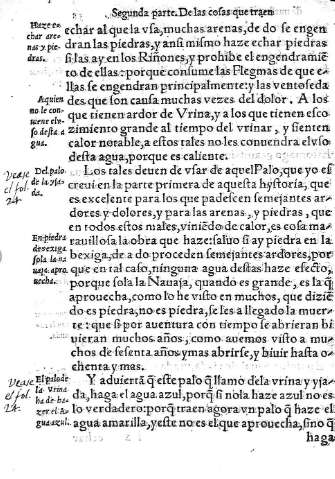 Segunda parte. De las cosas que traen
Haze en
char are-
nas y pie-
dras.
echar al que la vsa, muchas arenas, de do se engen
dran las piedras, y ansi mismo haze echar piedras
si las ay en los Riñones, y prohibe el engendramiẽ
to de ellas: porque consume las Flegmas de que e-
llas se engendran principalmente: y las ventoseda
des que son causa muchas vezes del dolor. A los
que tienen ardor de Vrina, y a los que tienen esco
zimiento grande al tiempo del vrinar, y sienten
calor notable, a estos tales no les conuendra el vso
desta agua, porque es caliente.
A quien
no le con-
uiene el v-
so desta a
gua.
Los tales deuen de vsar de aquel Palo, que yo es
creui en la parte primera de aquesta hystoria, que
es excelente para los que padescen semejantes ar
dores y dolores, y para las arenas, y piedras, que
en todos estos males, viniẽdo de calor, es cosa ma-
rauillosa la obra que haze: saluo si ay piedra en la
bexiga, de a do proceden semejantes ardores, por
que en tal caso, ninguna agua destas haze efecto,
porque sola la Nauaja, quando es grande, es la q̃
aprouecha, como lo he visto en muchos, que diziẽ
do es piedra, no es piedra, se les a llegado la muer-
te: que si por auentura con tiempo se abrieran bi
uieran muchos años, como auemos visto a mu-
chos de sesenta años y mas abrirse, y biuir hasta o-
chenta y mas.
Del palo
de la yja-
da.
veaje
el fol.
24.
En piedra
de vexiga
sola la na
uaja apro
uecha.
Y aduierta q̃ este palo q̃ llamo dela vrina y yja-
da, haga el agua azul, porq̃ si no la haze azul no es
lo verdadero: porq̃ traen agora vn palo q̃ haze el
agua amarilla, y este no es el que aprouecha, sino q̃
El palo de
la Vrina
ha de ha-
zer el A-
gua azul.
veaje
el fol.
24.
haga